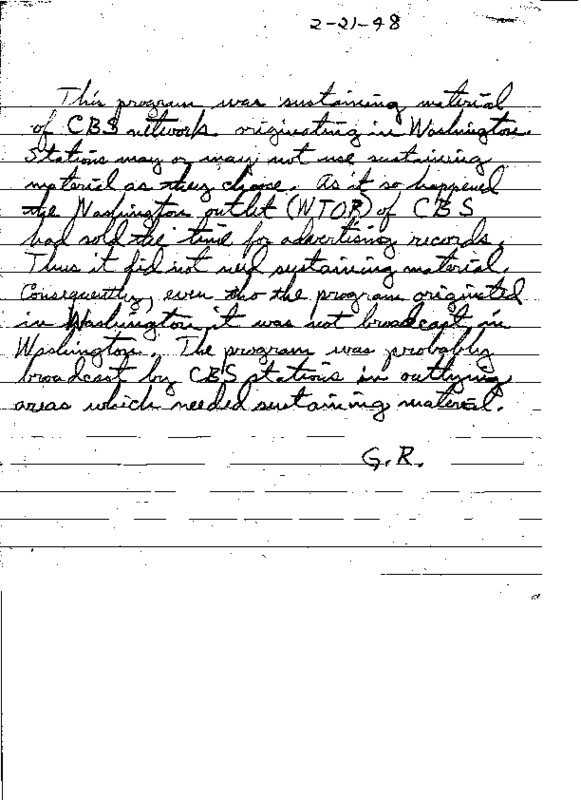 2-21-48
This program was sustaining material
of CBS network originating in Washington.
Stations may or may not use sustaining
material as they choose. As it so happened
the Washington outlet (WTOP) of CBS
had sold the time for advertising records.
Thus it did not need sustaining material.
Consequently, even tho the program originated
in Washington it was not broadcast in
Washington. The program was probably
broadcast by CBS stations in outlying
areas which needed sustaining material.
G.R.